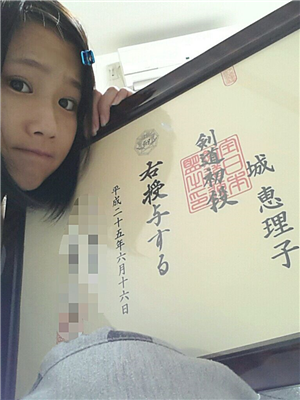 城 恵理子
剣道初段
右授与する
平成二十五年六月十六日